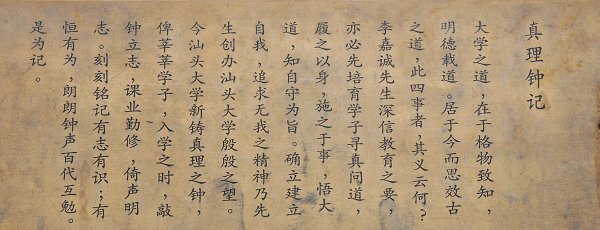 真理钟记
大学之道，在于格物致知，
明德载道。居于今而思效古
之道，此四事者，其义云何？
李嘉诚先生深信教育之要，
亦必先培育学子寻真问道，
履之以身，施之于事，悟大
道，知自守为旨。确立建立
自我，追求无我之精神乃先
生创办汕头大学殷殷之望。
今汕头大学新铸真理之钟，
俾莘莘学子，入学之时，敲
钟立志，课业勤修，倚声明
志。刻刻铭记有志有识；有
恒有为，朗朗钟声百代互勉。
是为记。